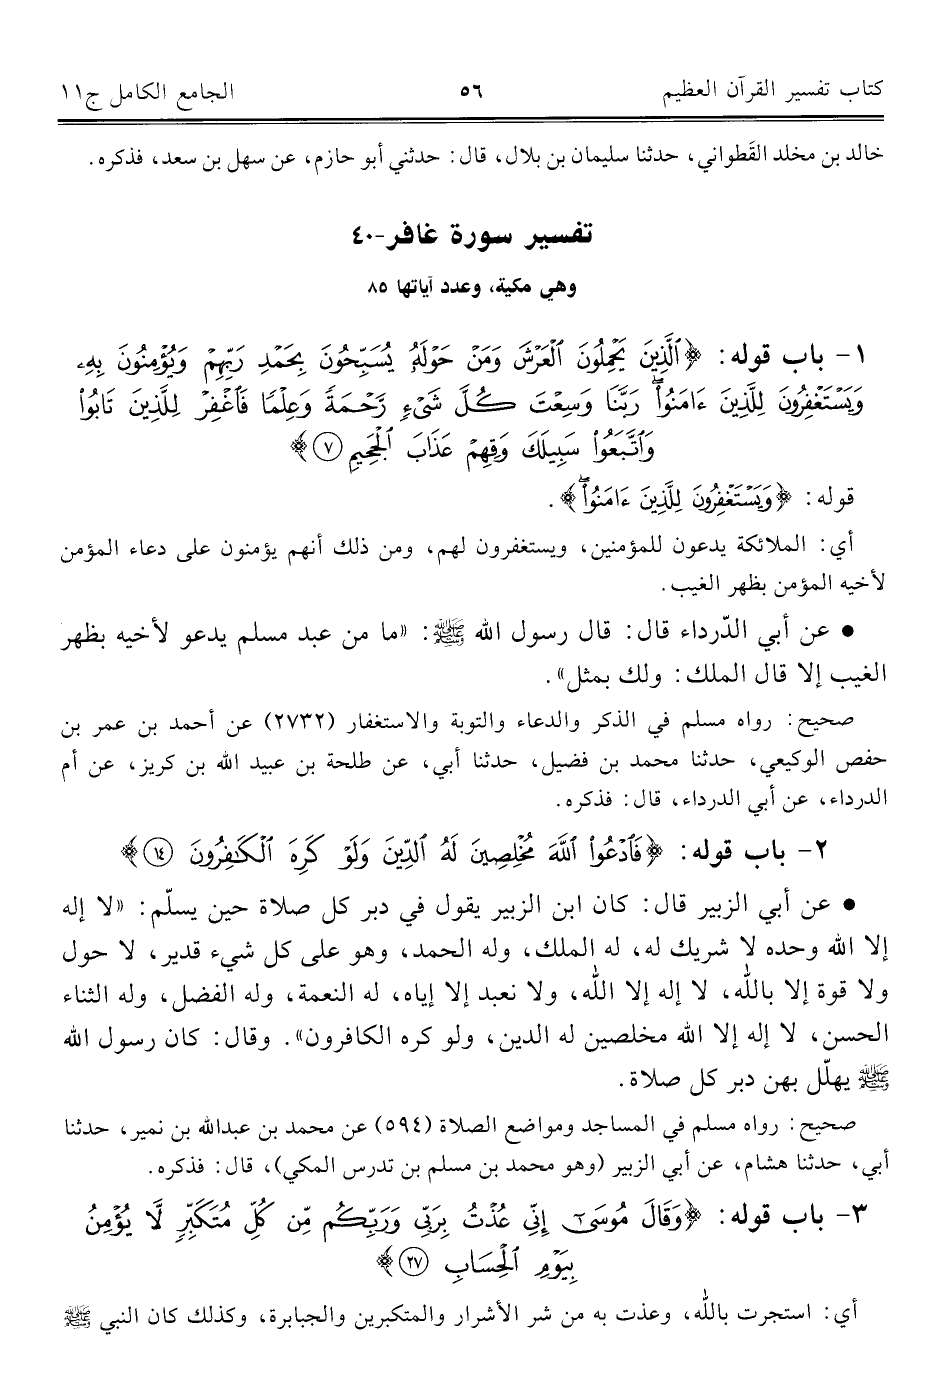 كتاب تفسير القرآن العظيم ٥٦ الجامع الكامل ج١١
خالد بن مخلد القَطواني، حدثنا سليمان بن بلال، قال: حدثني أبو حازم، عن سهل بن سعد، فذكره.
تفسير سورة غافر-٤٠
وهي مكية، وعدد آياتها ٨٥
١- باب قوله: ﴿ٱلَّذِينَ يَحْمِلُونَ ٱلْعَرْشَ وَمَنْ حَوْلَهُۥ يُسَبِّحُونَ بِحَمْدِ رَبِّهِمْ وَيُؤْمِنُونَ بِهِۦ
وَيَسْتَغْفِرُونَ لِلَّذِينَ ءَامَنُوا۟ۖ رَبَّنَا وَسِعْتَ كُلَّ شَىْءٍ رَّحْمَةً وَعِلْمًا فَٱغْفِرْ لِلَّذِينَ تَابُوا۟
وَٱتَّبَعُوا۟ سَبِيلَكَ وَقِهِمْ عَذَابَ ٱلْجَحِيمِ ٧﴾
قوله: ﴿وَيَسْتَغْفِرُونَ لِلَّذِينَ ءَامَنُوا۟ۖ﴾.
أي: الملائكة يدعون للمؤمنين، ويستغفرون لهم، ومن ذلك أنهم يؤمنون على دعاء المؤمن
لأخيه المؤمن بظهر الغيب.
• عن أبي الدّرداء قال: قال رسول الله ﷺ: «ما من عبد مسلم يدعو لأخيه بظهر
الغيب إلا قال الملك: ولك بمثل».
صحيح: رواه مسلم في الذكر والدعاء والتوبة والاستغفار (٢٧٣٢) عن أحمد بن عمر بن
حفص الوكيعي، حدثنا محمد بن فضيل، حدثنا أبي، عن طلحة بن عبيد الله بن كريز، عن أم
الدرداء، عن أبي الدرداء، قال: فذكره.
٢- باب قوله: ﴿فَٱدْعُوا۟ ٱللَّهَ مُخْلِصِينَ لَهُ ٱلدِّينَ وَلَوْ كَرِهَ ٱلْكَٰفِرُونَ ١٤﴾
• عن أبي الزبير قال: كان ابن الزبير يقول في دبر كل صلاة حين يسلّم: «لا إله
إلا الله وحده لا شريك له، له الملك، وله الحمد، وهو على كل شيء قدير، لا حول
ولا قوة إلا بالله، لا إله إلا الله، ولا نعبد إلا إياه، له النعمة، وله الفضل، وله الثناء
الحسن، لا إله إلا الله مخلصين له الدين، ولو كره الكافرون». وقال: كان رسول الله
ﷺ يهلّل بهن دبر كل صلاة.
صحيح: رواه مسلم في المساجد ومواضع الصلاة (٥٩٤) عن محمد بن عبدالله بن نمير، حدثنا
أبي، حدثنا هشام، عن أبي الزبير (وهو محمد بن مسلم بن تدرس المكي)، قال: فذكره.
٣- باب قوله: ﴿وَقَالَ مُوسَىٰٓ إِنِّى عُذْتُ بِرَبِّى وَرَبِّكُم مِّن كُلِّ مُتَكَبِّرٍ لَّا يُؤْمِنُ
بِيَوْمِ ٱلْحِسَابِ ٢٧﴾
أي: استجرت بالله، وعذت به من شر الأشرار والمتكبرين والجبابرة، وكذلك كان النبي ﷺ